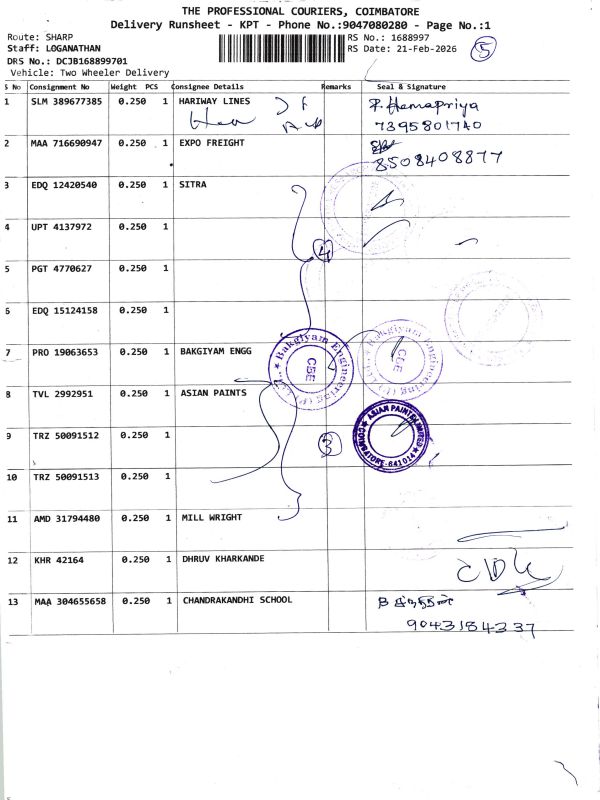 THE PROFESSIONAL COURIERS, COIMBATORE
Delivery Runsheet - KPT - Phone No.:9047080280 - Page No.:1
Route: SHARP
RS No.: 1688997
Staff: LOGANATHAN
RS Date: 21-Feb-2026
5
DRS No.: DCJB168899701
Vehicle: Two Wheeler Delivery
S No Consignment No Weight PCS Consignee Details Remarks Seal & Signature
1 SLM 389677385 0.250 1 HARIWAY LINES P. Hemapriya
7395801740
2 MAA 716690947 0.250 1 EXPO FREIGHT
8508408877
3 EDQ 12420540 0.250 1 SITRA
4 UPT 4137972 0.250 1
4
5 PGT 4770627 0.250 1
6 EDQ 15124158 0.250 1
7 PRO 19063653 0.250 1 BAKGIYAM ENGG
Bakgiyam Engineering (P) Ltd.
CBE
8 TVL 2992951 0.250 1 ASIAN PAINTS
ASIAN PAINTS LIMITED
COIMBATORE-641014
9 TRZ 50091512 0.250 1
3
10 TRZ 50091513 0.250 1
11 AMD 31794480 0.250 1 MILL WRIGHT
12 KHR 42164 0.250 1 DHRUV KHARKANDE
13 MAA 304655658 0.250 1 CHANDRAKANDHI SCHOOL
9043184337